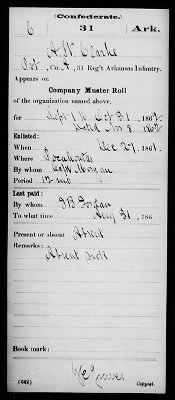 (Confederate.)
6 31 Ark.
A W Clarke
Pvt, Co. A, 31 Reg't Arkansas Infantry.
Appears on
Company Muster Roll
of the organization named above,
for Sept 1 to Oct 31, 1862.
Dated Nov 8 1862
Enlisted:
When Dec 27, 1861.
Where Pocahontas
By whom Capt Morgan
Period 12 mo
Last paid:
By whom
To what time Aug 31, 186
Present or absent Absent
Remarks:
Absent sick
Book mark:
(642) Copyist.